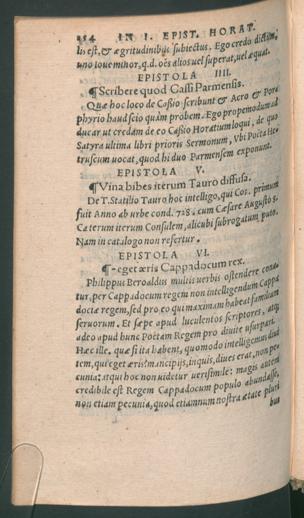 254 IN I. EPIST. HORAT.
lis est, & ægritudinibus subiectus. Ego credo dictum,
uno Ioue minor, q.d. oẽs alios uel superat, uel æquat.
EPISTOLA IIII.
¶ Scribere quod Cassi Parmensis.
Quæ hoc loco de Cassio scribunt & Acro & Por
phyrio haud scio quàm probem. Ego propemodum ad
ducar ut credam de eo Cassio Horatium loqui, de quo
Satyra ultima libri prioris Sermonum, Vbi Poëta He
truscum uocat, quod hi duo Parmensem exponunt.
EPISTOLA V.
¶ Vina bibes iterum Tauro diffusa.
De T. Statilio Tauro hoc intelligo, qui Cos. primùm
fuit Anno ab urbe cond. 728. cum Cæsare Augusto s.
Cæterum iterum Consulem, alicubi subrogatum puto.
Nam in catalogo non refertur.
EPISTOLA VI.
¶ -eget æris Cappadocum rex.
Philippus Beroaldus multis uerbis ostendere cona
tur, per Cappadocum regem non intelligendum Cappa
dociæ regem, sed pro eo qui maximam habeat familiam
seruorum. Et sæpe apud luculentos scriptores, atque
adeo apud hunc Poëtam Regem pro diuite usurpari.
Hæc ille. quæ si ita habent, quomodo intelligemus diui
tem, qui eget æris? mancipijs, inquis, diues erat, non pe
cunia: atqui hoc non uidetur uerisimile: magis autem
credibile est Regem Cappadocum populo abundasse,
non etiam pecunia, quod etiamnum nostra ætate pluri
bus